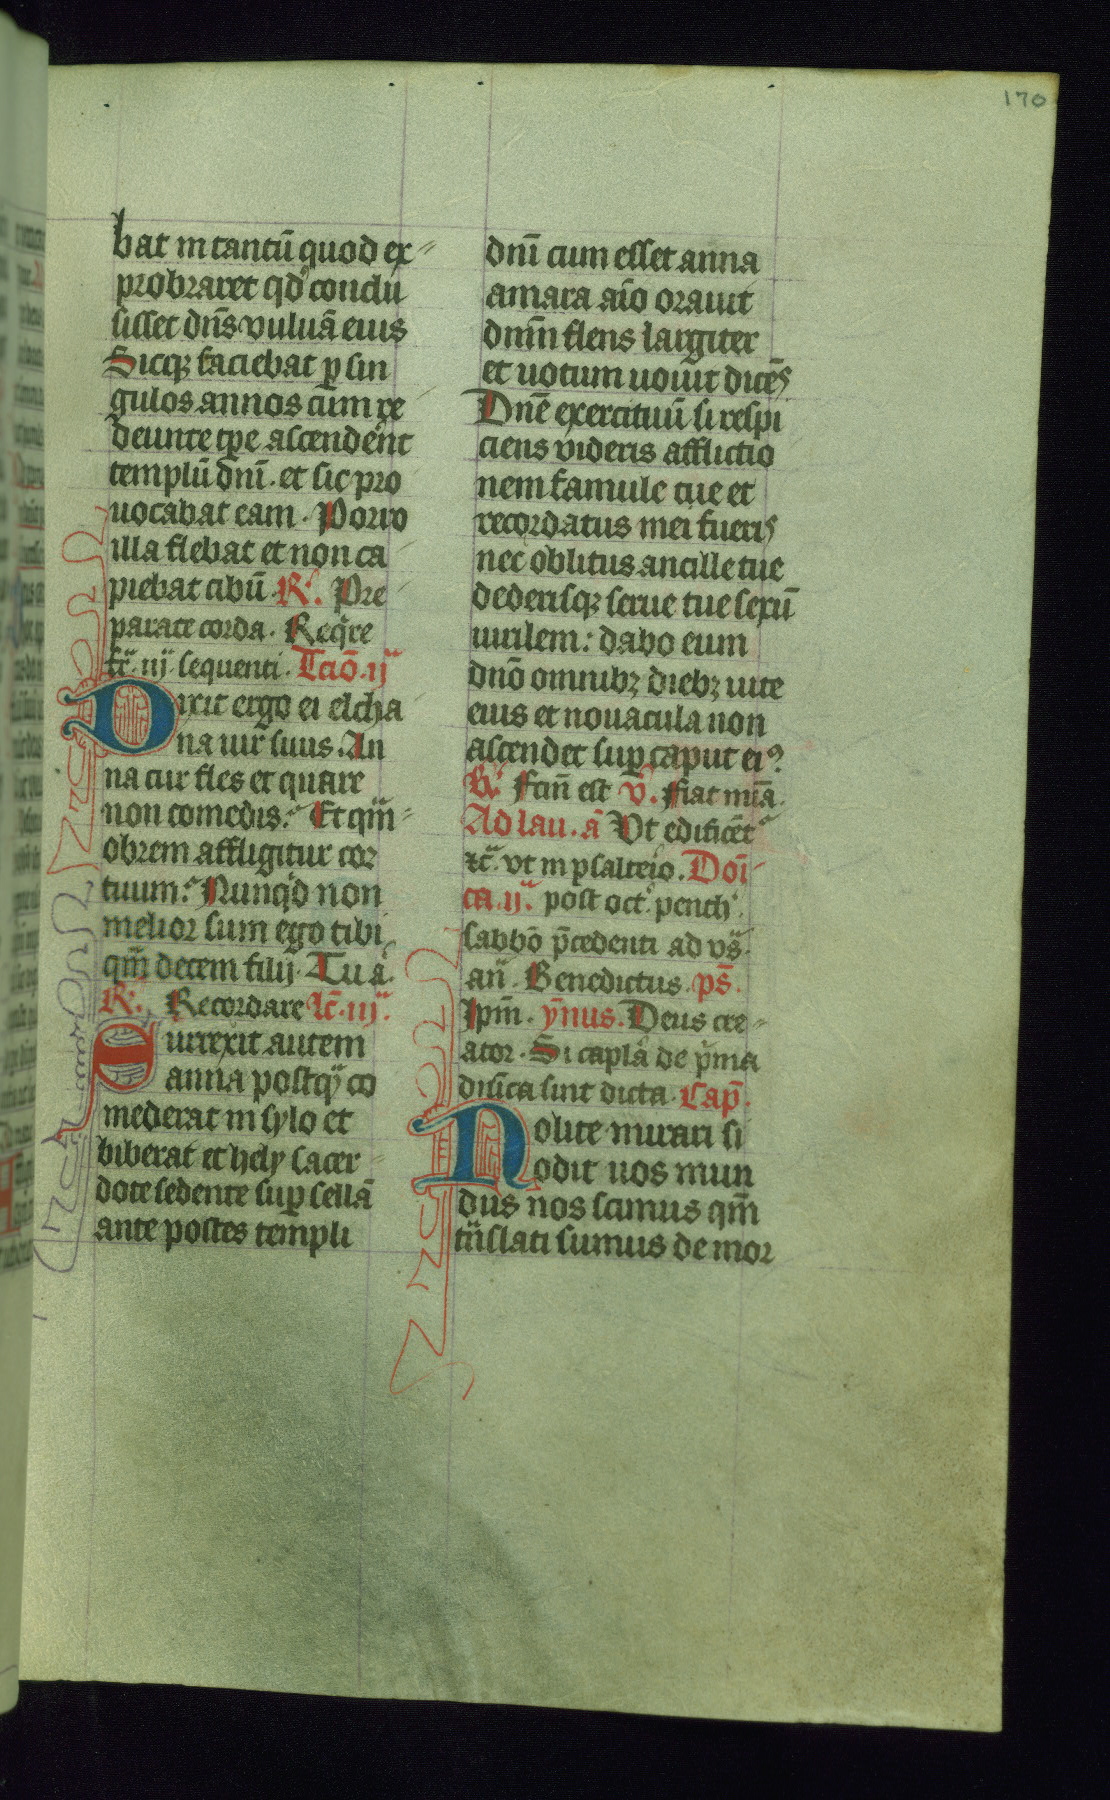 170
bat in tantū quod ex
probraret qd' conclu
sisset dn̄s vuluā eius
Sicq; faciebat p sin
gulos annos cum re
deunte tpe ascendent
templū dn̄i. et sic pro
uocabat eam. Porro
illa flebat et non ca
piebat cibū R'. Pre
parate corda. Reqire
fr̄. iij. sequenti. Lctiō. ij
Dixit ergo ei elcha
na uir suus. An
na cur fles et quare
non comedis. Et qm̄
obrem affligitur cor
tuum. Nunqd non
melior sum ego tibi
qm̄ decem filij. Tu a.
R'. Recordare Lc̄. iij.
Surrexit autem
anna postq co
mederat in sylo et
biberat et hely sacer
dote sedente sup sellā
ante postes templi
dn̄i cum esset anna
amara aīo orauit
dn̄m flens largiter
et uotum uouit dicēs
Dn̄e exercituū si respi
ciens videris afflictio
nem famule tue et
recordatus mei fueris
nec oblitus ancille tue
dederisq; serue tue sexū
uirilem: dabo eum
dn̄o omnibz diebz uite
eius et nouacula non
ascendet sup caput ei9
R'. Fcm̄ est V. Fiat mīa.
Ad lau. ā Vt edificēt
rc̄. vt in psalterio. Doī
ca. ij. post oct. pench'.
sabbō p̄cedenti ad vs̄.
an̄. Benedictus. ps̄.
Ipm̄. ymnus. Deus cre
ator. Si capla de p̄ma
dn̄ica sint dicta. Cap̄.
Nolite mirari si
odit uos mun
dus nos scimus qm̄
trāslati sumus de mor